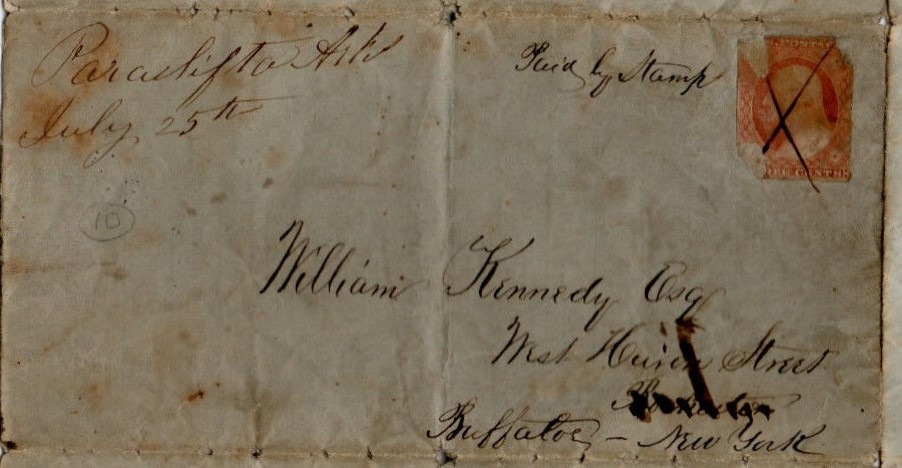 Paraclifta Arks
July 25th
Paid by Stamp
POSTA
EE CENTS
10
William Kennedy Esq
West Huron Street
Buffaloe - New York